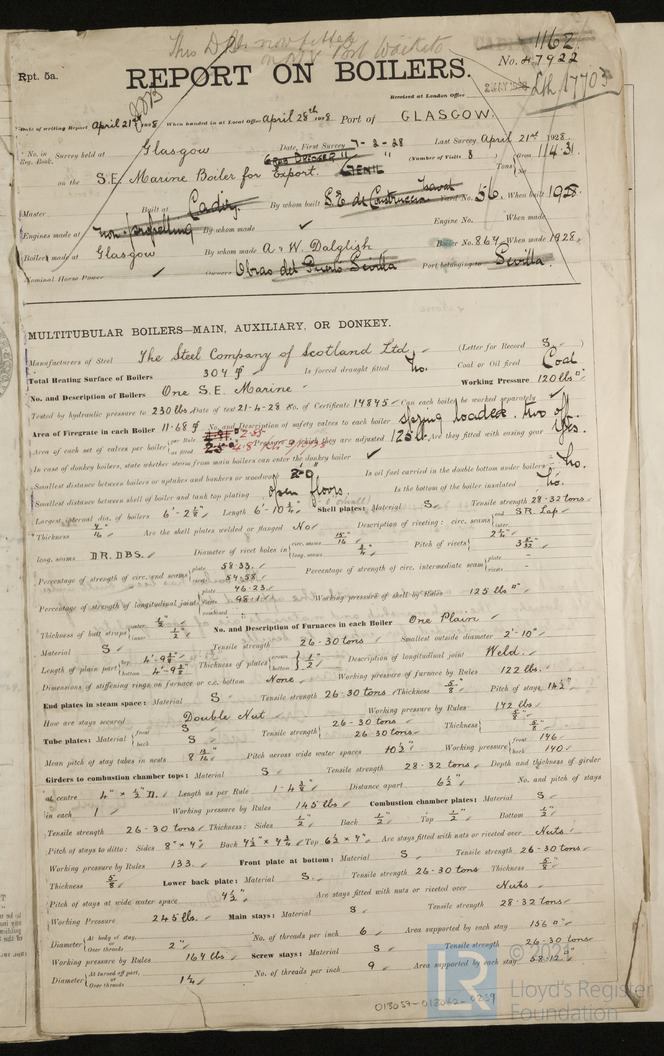 This D.B. now fitted
on M.V. Port Waikato
Rpt. 5a.
1162
No. 47922
REPORT ON BOILERS.
Received at London Office
2 MAY 1928
Lth 17703
Date of writing Report April 21st 1928 When handed in at Local Office April 28th 1928 Port of GLASGOW
No. in Reg. Book. Survey held at Glasgow Date, First Survey 7-2-28 Last Survey April 21st 1928
(Number of Visits 8 ) Tons Gross 114.31 Net
on the S.E. Marine Boiler for Export. "GENIL"
Master Built at Cadiz By whom built S.E. de Construccion Naval Yard No. 56 When built 1928
Engines made at non-propelling By whom made ✓ Engine No. When made
Boilers made at Glasgow By whom made A & W. Dalglish Boiler No. 864 When made 1928
Nominal Horse Power ✓ Owners Obras del Puerto Sevilla Port belonging to Sevilla.
MULTITUBULAR BOILERS—MAIN, AUXILIARY, OR DONKEY.
Manufacturers of Steel The Steel Company of Scotland Ltd (Letter for Record S )
Total Heating Surface of Boilers 304 ft Is forced draught fitted No. Coal or Oil fired Coal
No. and Description of Boilers One S.E. Marine Working Pressure 120 lbs □"
Tested by hydraulic pressure to 230 lbs Date of test 21-4-28 No. of Certificate 14845 Can each boiler be worked separately ✓
Area of Firegrate in each Boiler 11.68 ft No. and Description of safety valves to each boiler Spring loaded. two off.
Area of each set of valves per boiler per Rule 2.55 as fitted 4.8 Pressure to which they are adjusted 125 lb Are they fitted with easing gear Yes.
In case of donkey boilers, state whether steam from main boilers can enter the donkey boiler ✓
Smallest distance between boilers or uptakes and bunkers or woodwork 2'-0" Is oil fuel carried in the double bottom under boilers No.
Smallest distance between shell of boiler and tank top plating open floors. Is the bottom of the boiler insulated No.
Largest internal dia. of boilers 6'-2 1/8" Length 6'-10 1/2" Shell plates: Material S Tensile strength 28-32 tons
Thickness 7/16" Are the shell plates welded or flanged No Description of riveting: circ. seams end S.R. Lap
long. seams D.R. D.B.S. Diameter of rivet holes in circ. seams 15/16" long. seams 3/4" Pitch of rivets 2 1/4" 3 5/32"
Percentage of strength of circ. end seams plate 58.33. rivets 54.58 Percentage of strength of circ. intermediate seam plate - rivets -
Percentage of strength of longitudinal joint plate 76.23 rivets 98.1 combined Working pressure of shell by Rules 125 lbs □"
Thickness of butt straps outer 1/2" inner 1/2" No. and Description of Furnaces in each Boiler One Plain
Material S Tensile strength 26-30 tons Smallest outside diameter 2'-10"
Length of plain part top 4'-9 3/4" bottom 4'-9 3/4" Thickness of plates crown 1/2" bottom 1/2" Description of longitudinal joint Weld.
Dimensions of stiffening rings on furnace or c.c. bottom None Working pressure of furnace by Rules 122 lbs.
End plates in steam space: Material S Tensile strength 26-30 tons Thickness 5/8" Pitch of stays 14 1/2"
How are stays secured Double Nut Working pressure by Rules 142 lbs
Tube plates: Material front S back S Tensile strength 26-30 tons 26-30 tons Thickness 5/8" 5/8"
Mean pitch of stay tubes in nests 8 13/16" Pitch across wide water spaces 10 1/2" Working pressure front 146 back 140
Girders to combustion chamber tops: Material S Tensile strength 28-32 tons Depth and thickness of girder
at centre 4" × 1/2" D. Length as per Rule 1-4 3/8" Distance apart 6 1/2" No. and pitch of stays
in each 1 Working pressure by Rules 145 lbs Combustion chamber plates: Material S
Tensile strength 26-30 tons Thickness: Sides 1/2" Back 1/2" Top 1/2" Bottom 1/2"
Pitch of stays to ditto: Sides 8" × 7" Back 7 1/2" × 7 3/4" Top 6 1/2" × 7" Are stays fitted with nuts or riveted over Nuts
Working pressure by Rules 133. Front plate at bottom: Material S Tensile strength 26-30 tons
Thickness 5/8" Lower back plate: Material S Tensile strength 26-30 tons Thickness 5/8"
Pitch of stays at wide water space 7 1/2" Are stays fitted with nuts or riveted over Nuts
Working Pressure 245 lbs. Main stays: Material S Tensile strength 28-32 tons
Diameter At body of stay, Over threads 2" No. of threads per inch 6 Area supported by each stay 156 □"
Working pressure by Rules 167 lbs Screw stays: Material S Tensile strength 26-30 tons
Diameter At turned off part, Over threads 1 1/4" No. of threads per inch 9 Area supported by each stay 58.12 □"
013057-013062-0259
LR
© 2021
Lloyd's Register
Foundation